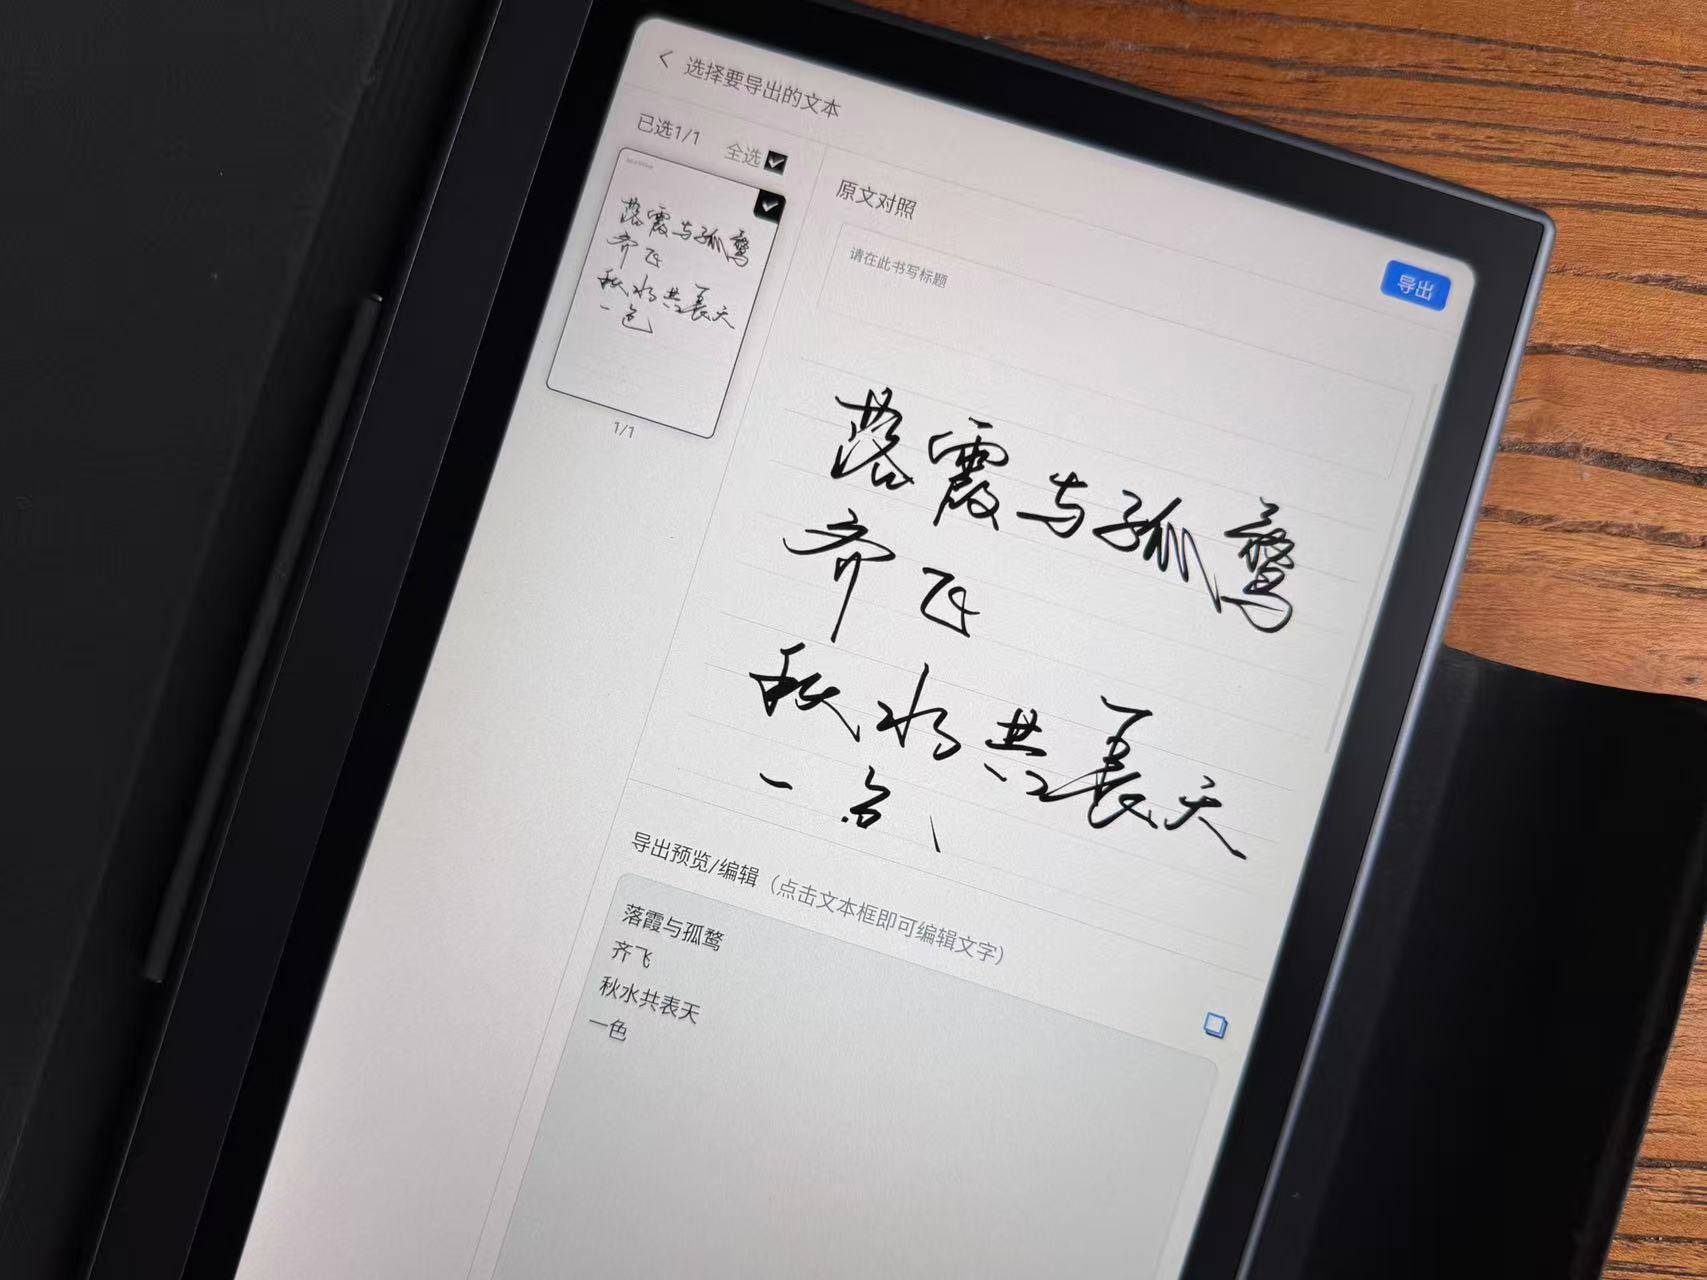 选择要导出的文本
已选1/1
全选
落霞与孤鹜
齐飞
秋水共長天
一色
1/1
原文对照
导出
请在此书写标题
落霞与孤鹜
齐飞
秋水共長天
一色
导出预览/编辑（点击文本框即可编辑文字）
落霞与孤鹜
齐飞
秋水共表天
一色